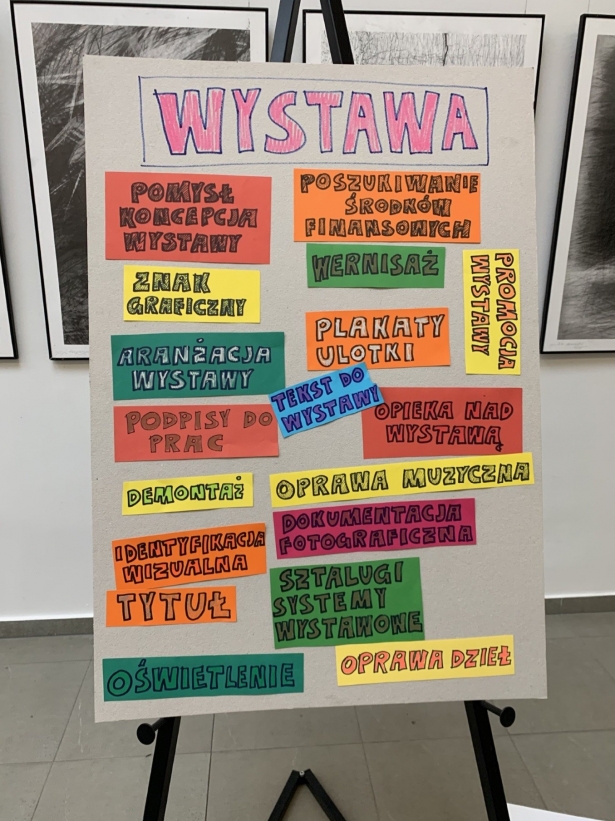 WYSTAWA
POMYSŁ
KONCEPCJA
WYSTAWY
POSZUKIWANIE
ŚRODKÓW
FINANSOWYCH
WERNISAŻ
PROMOCJA
WYSTAWY
ZNAK
GRAFICZNY
PLAKATY
ULOTKI
ARANŻACJA
WYSTAWY
TEKST DO
WYSTAWY
PODPISY DO
PRAC
OPIEKA NAD
WYSTAWĄ
DEMONTAŻ
OPRAWA MUZYCZNA
DOKUMENTACJA
FOTOGRAFICZNA
IDENTYFIKACJA
WIZUALNA
TYTUŁ
SZTALUGI
SYSTEMY
WYSTAWOWE
OŚWIETLENIE
OPRAWA DZIEŁ